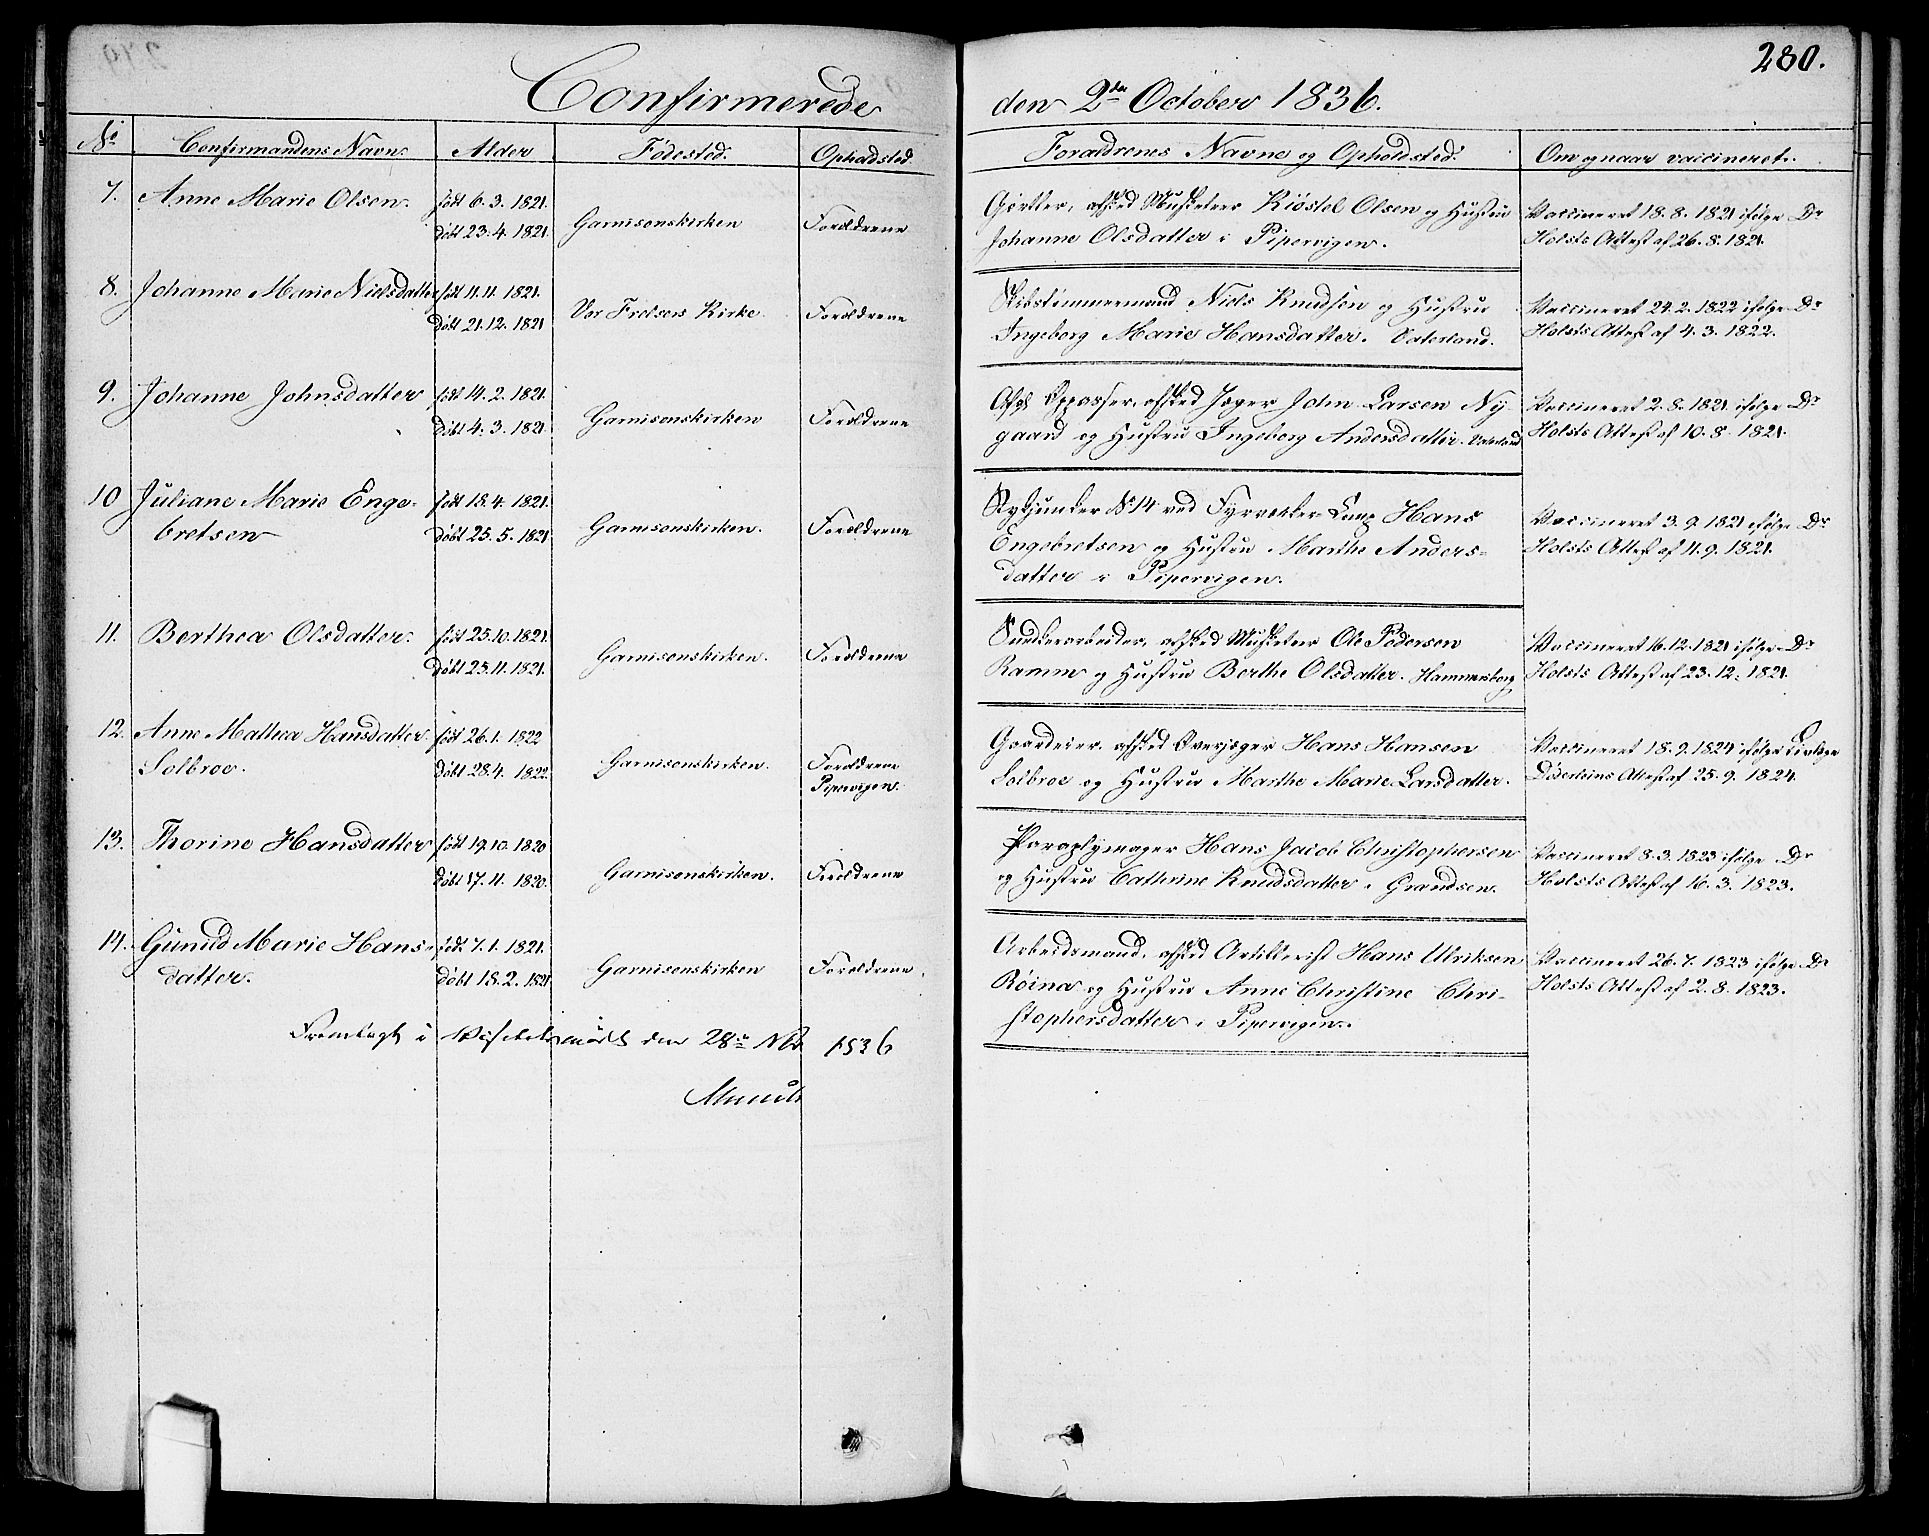 280.
Confirmerede den 2den October 1836.
No Confirmandens Navn. Alder Födested. Opholdsted Forældrenes Navne og Opholdsted. Om og naar vaccineret.
7. Anne Marie Olsen. født 6. 3. 1821.
døbt 23. 4. 1821. Garnisonskirken Forældrene
Gjørtler, afsked Musketeer Kiøstel Olsen og Hustru
Johanne Olsdatter i Pipervigen.
Vaccineret 18. 8. 1821 ifølge Dr
Holsts Attest af 26. 8. 1821.
8. Johanne Marie Nielsdatter født 11. 11. 1821.
døbt 21. 12. 1821 Vor Frelsers Kirke. Forældrene
Skibstømmermand Niels Knudsen og Hustru
Ingeborg Marie Hansdatter. Vaterland.
Vaccineret 24. 2. 1822 ifølge Dr
Holsts Attest af 4. 3. 1822.
9. Johanne Johnsdatter født 14. 2. 1821.
døbt 4. 3. 1821. Garnisonskirken Forældrene
Opposser, afsked Jæger John Larsen Ny-
gaard og Hustru Ingeborg Andersdatter. Vaterland
Vaccineret 2. 8. 1821 ifølge Dr
Holsts Attest af 10. 8. 1821.
10 Juliane Marie Enge-
bretsen født 18. 4. 1821.
døbt 25. 5. 1821 Garnisonskirken. Forældrene
No 14 ved Fyrverker Comp Hans
Engebretsen og Hustru Marthe Anders-
datter i Pipervigen.
Vaccineret 3. 9. 1821 ifølge Dr
Holsts Attest af 11. 9. 1821.
11. Berthea Olsdatter. født 25. 10. 1821.
døbt 25. 11. 1821. Garnisonskirken. Forældrene
Sukkerarbeider, afsked Musketeer Ole Pedersen
Ramm og Hustru Berthe Olsdatter. Hammersborg
Vaccineret 16. 12. 1821 ifølge Dr
Holsts Attest af 23. 12. 1821.
12. Anne Mathea Hansdatter
Solbroe. født 26. 1. 1822
døbt 28. 4. 1822. Garnisonskirken. Forældrene
Pipervigen.
Gaardeier, afsked Overjæger Hans Hansen
Solbroe og Hustru Marthe Marie Larsdatter.
Vaccineret 18. 9. 1824 ifølge
Attest af 25. 9. 1824.
13. Thorine Hansdatter født 19. 10. 1820
døbt 17. 11. 1820. Garnisonskirken. Forældrene
Paraplymager Hans Jacob Christophersen
og Hustru Cathrine Knudsdatter i Grændsen.
Vaccineret 8. 3. 1823 ifølge Dr
Holsts Attest af 16. 3. 1823.
14. Gunild Marie Hans-
datter. født 7. 1. 1821.
døbt 18. 2. 1821 Garnisonskirken Forældrene
Arbeidsmand, afsked Artillerist Hans Ulriksen
Røina og Hustru Anne Christine Chri-
stophersdatter i Pipervigen.
Vaccineret 26. 7. 1823 ifølge Dr
Holsts Attest af 2. 8. 1823.
Fremlagt i den 28de Nbr 1836